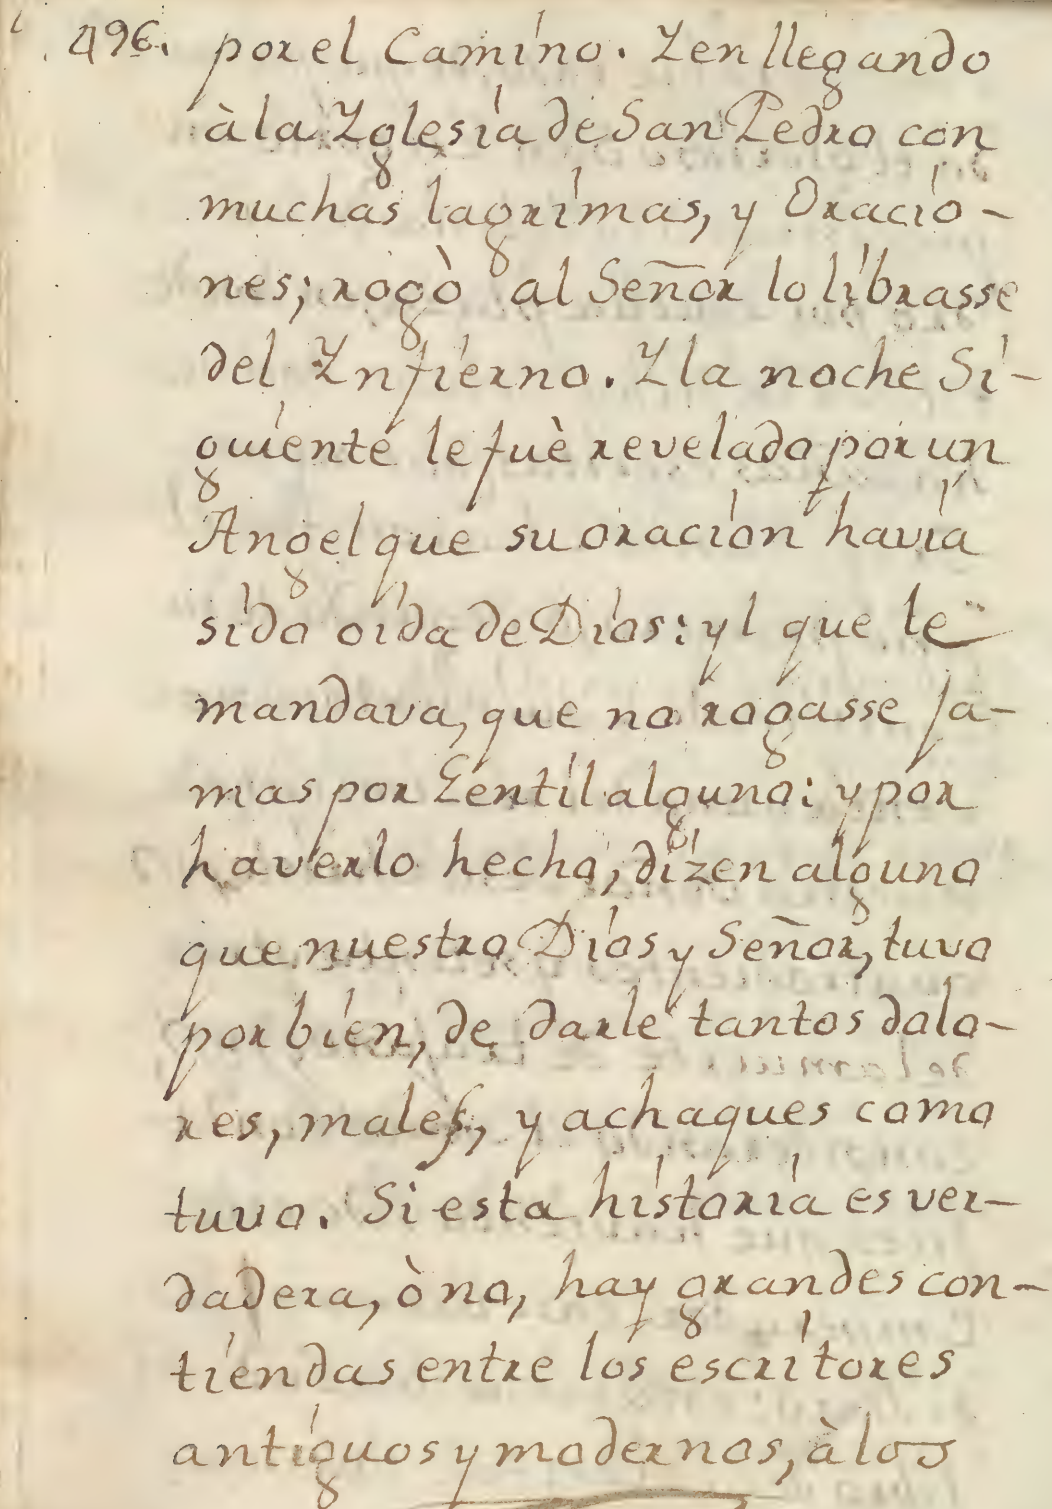 496. por el Camino. Y en llegando
à la Yglesia de San Pedro con
muchas lagrimas, y Oracio-
nes; rogò al Señor lo librasse
del Ynfierno. Y la noche Si-
guiente le fuè revelado por un
Angel que su oracion havia
sido oida de Dios: yl que le
mandava, que no rogasse ja-
mas por Gentil alguno: y por
haverlo hecho, dizen alguno
que nuestro Dios y Señor, tuvo
por bien, de darle tantos dolo-
res, males, y achaques como
tuvo. Si esta historia es ver-
dadera, ò no, hay grandes con-
tiendas entre los escritores
antiguos y modernos, à los